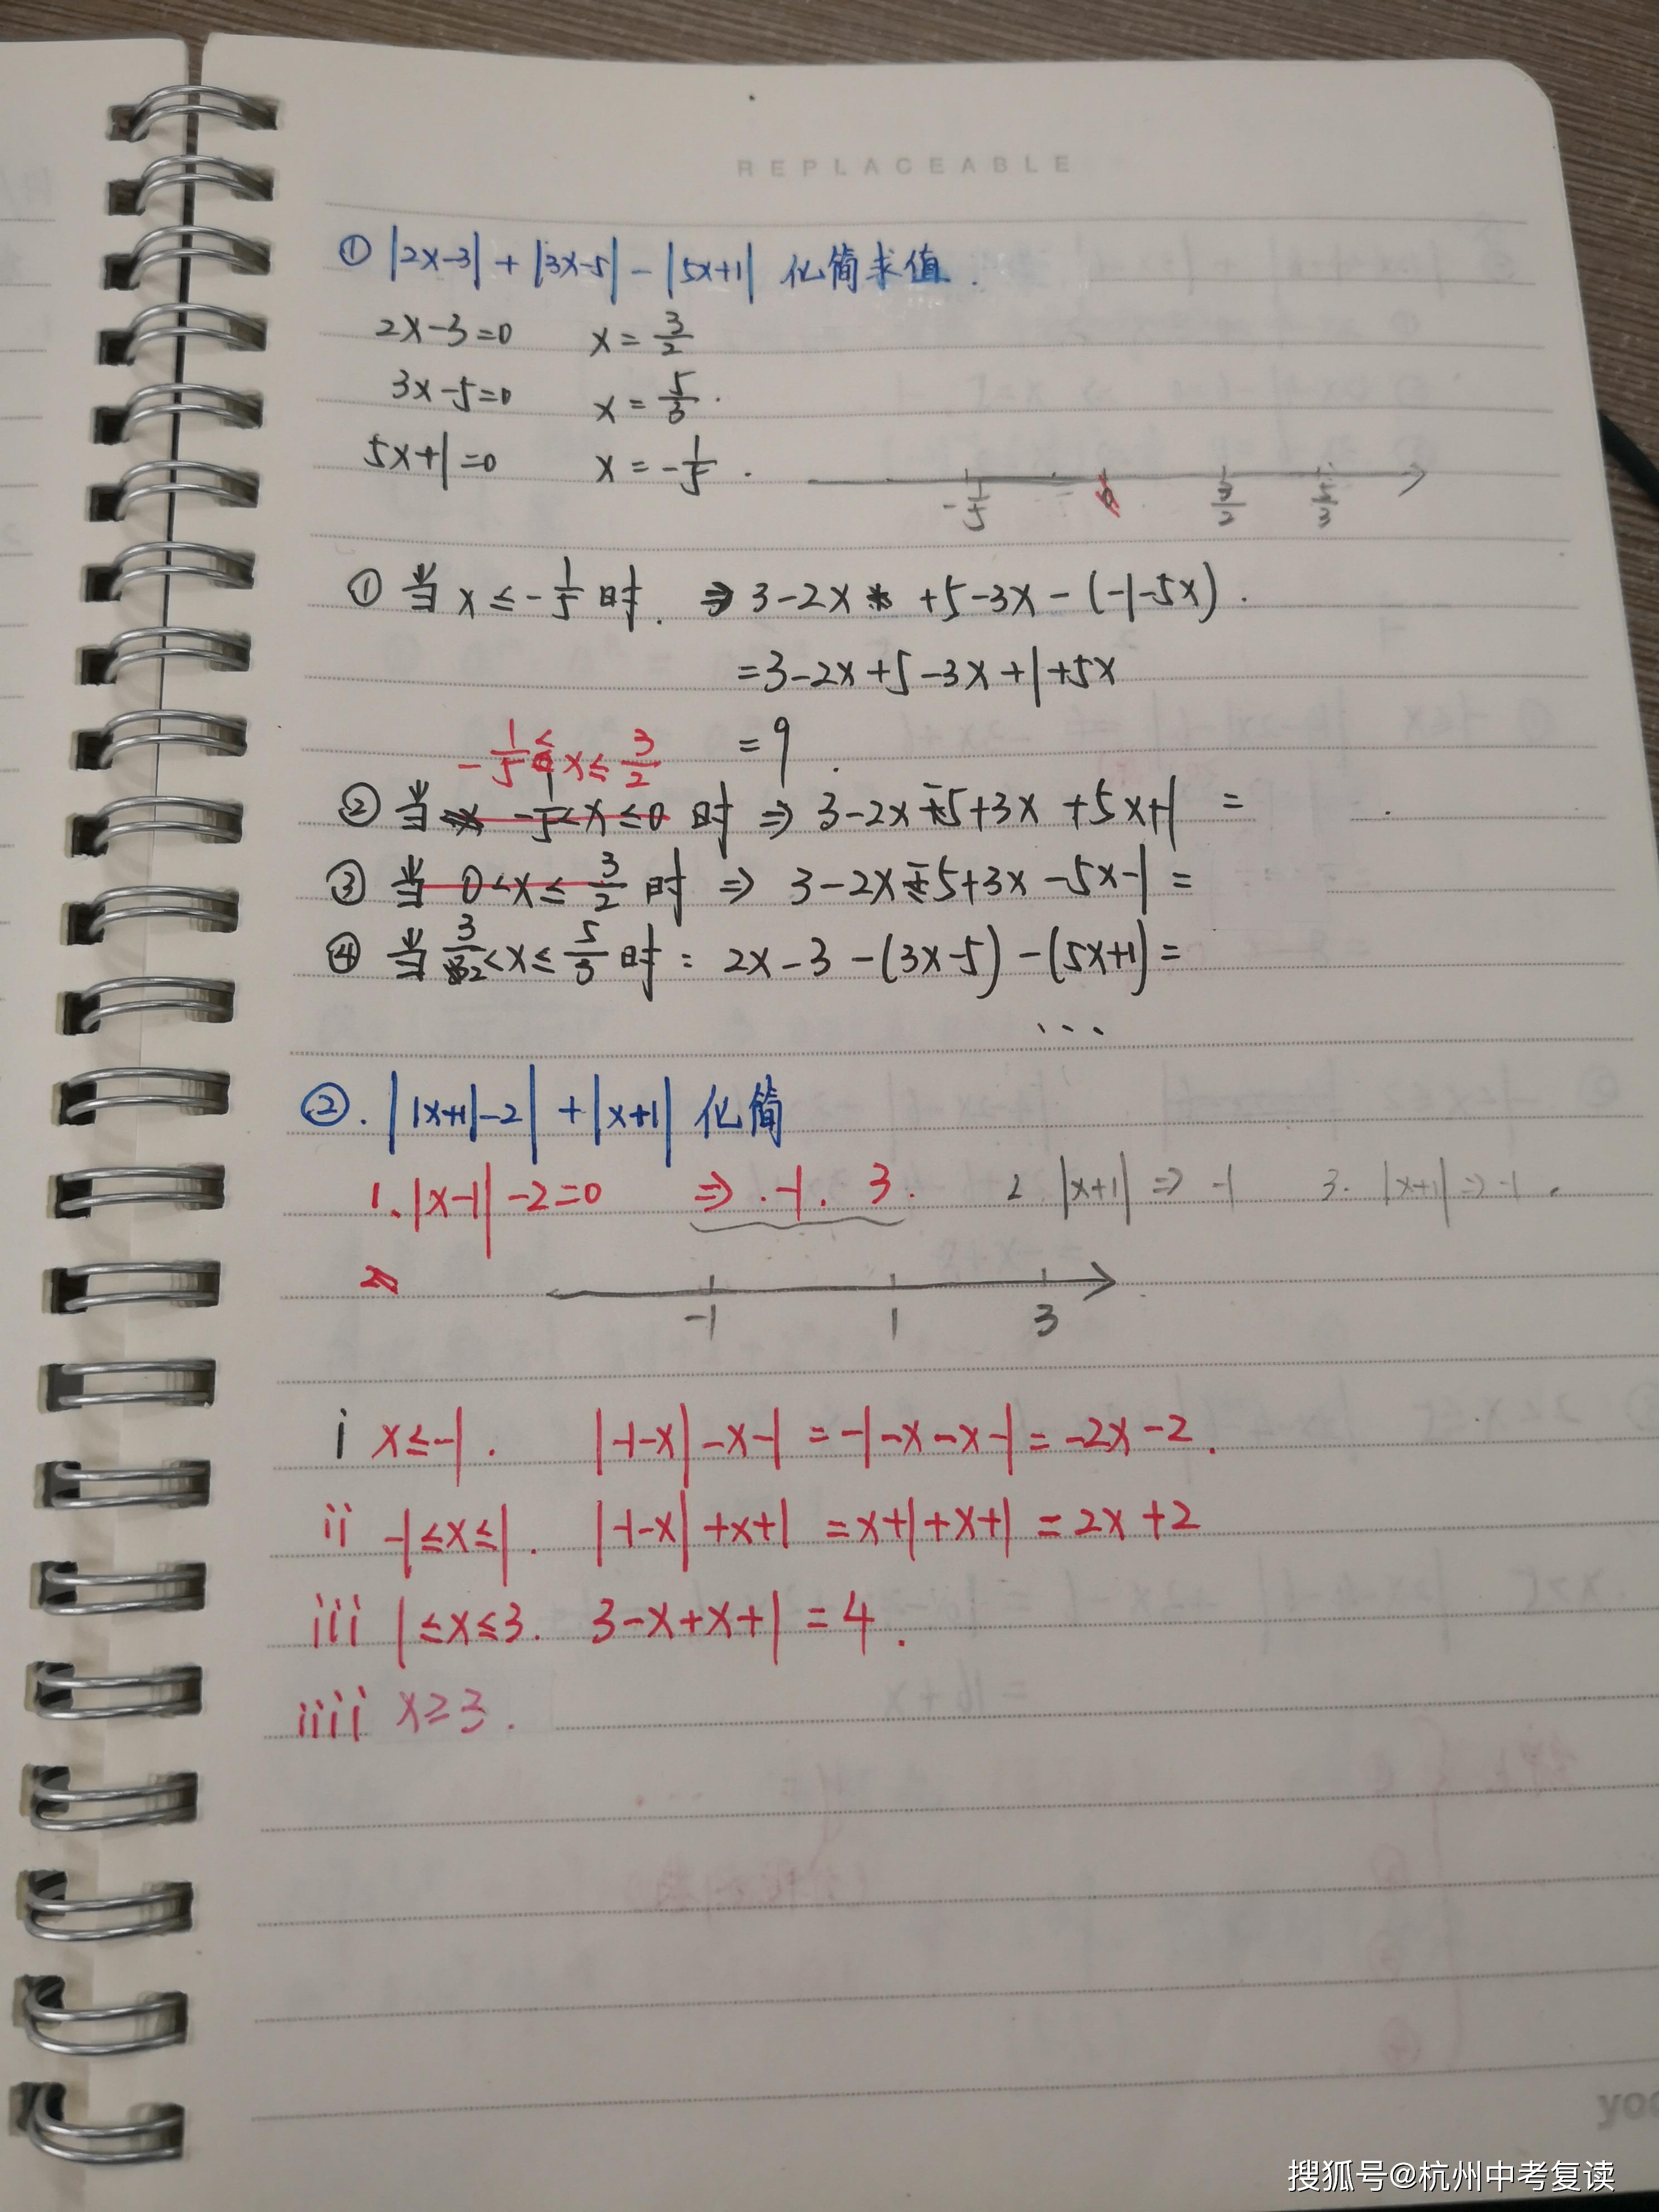 REPLACEABLE
① |2x-3| + |3x-5| - |5x+1| 化简求值.
2x-3=0 x=3/2
3x-5=0 x=5/3.
5x+1=0 x=-1/5.
-1/5 0 3/2 5/3
① 当 x≤-1/5 时. ⇒ 3-2x +5-3x-(-1-5x).
=3-2x+5-3x+1+5x
=9.
-1/5≤x≤3/2
② 当 -1/5<x≤0 时 ⇒ 3-2x-5+3x+5x+1 =
③ 当 0<x≤3/2 时 ⇒ 3-2x-5+3x-5x-1 =
④ 当 3/2<x≤5/3 时: 2x-3-(3x-5)-(5x+1)=
...
②. ||x+1|-2|+|x+1| 化简
1. |x-1|-2=0 ⇒ -1. 3. 2 |x+1| ⇒ -1 3. |x+1| ⇒ -1.
-1 1 3
i x≤-1. |-1-x|-x-1 = -1-x-x-1 = -2x-2.
ii -1≤x≤1. |-1-x|+x+1 = x+1+x+1 = 2x+2
iii 1≤x≤3. 3-x+x+1=4.
iiii x≥3.
yoo
搜狐号@杭州中考复读